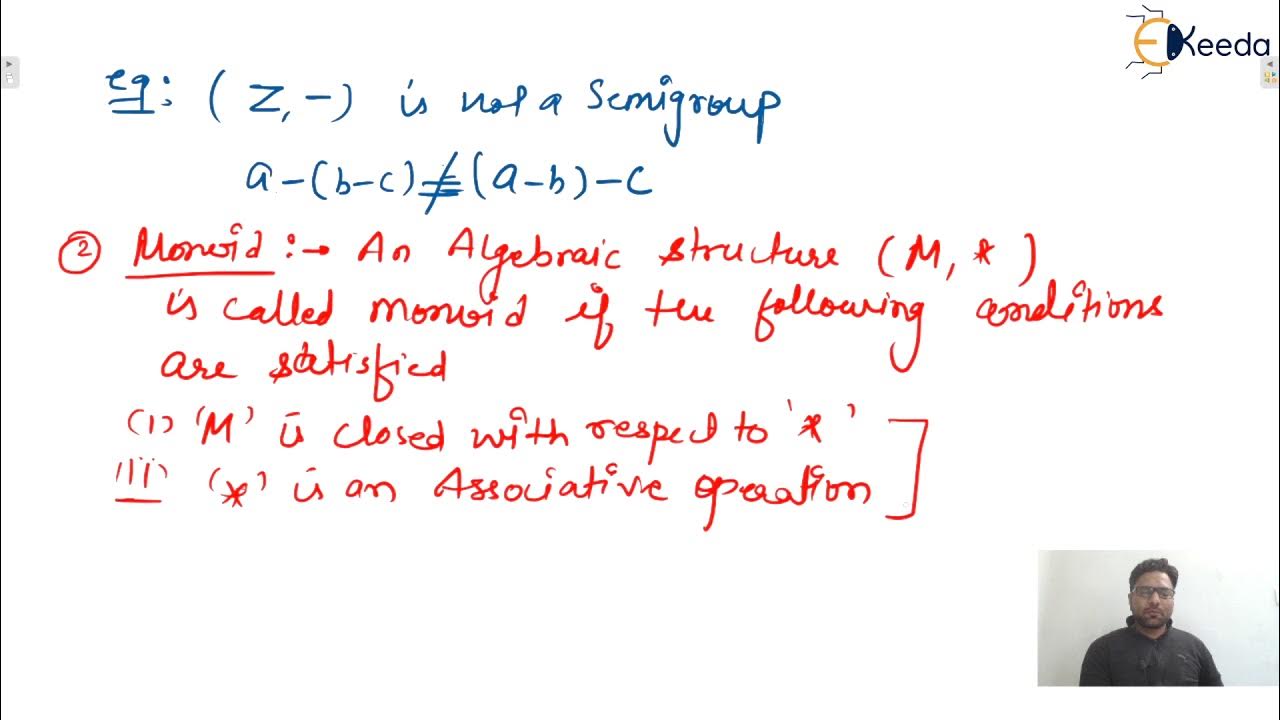 EKeeda
eg: (Z, -) is not a Semigroup
a-(b-c) ≠ (a-b)-c
② Monoid :→ An Algebraic structure (M, *)
is called monoid if the following conditions
are satisfied
(i) 'M' is closed with respect to '*'
(ii) '*' is an Associative operation